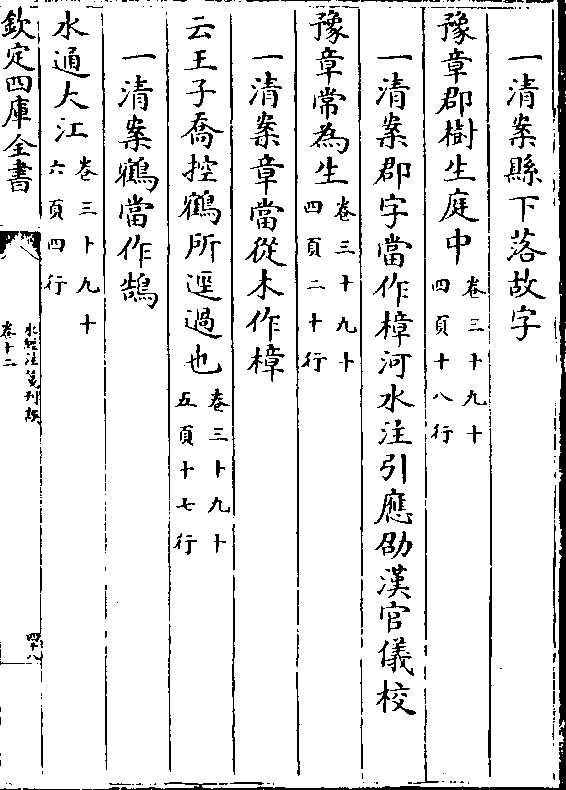 一清案縣下落故字
豫章郡樹生庭中卷三十九十四頁十八行
一清案郡字當作樟河水注引應劭漢官儀校
豫章常為生卷三十九十四頁二十行
一清案章當從木作樟
云王子喬控鶴所逕過也卷三十九十五頁十七行
一清案鶴當作鵠
水通大江卷三十九十六頁四行
欽定四庫全書
水經注箋刊誤
卷十二
四十八